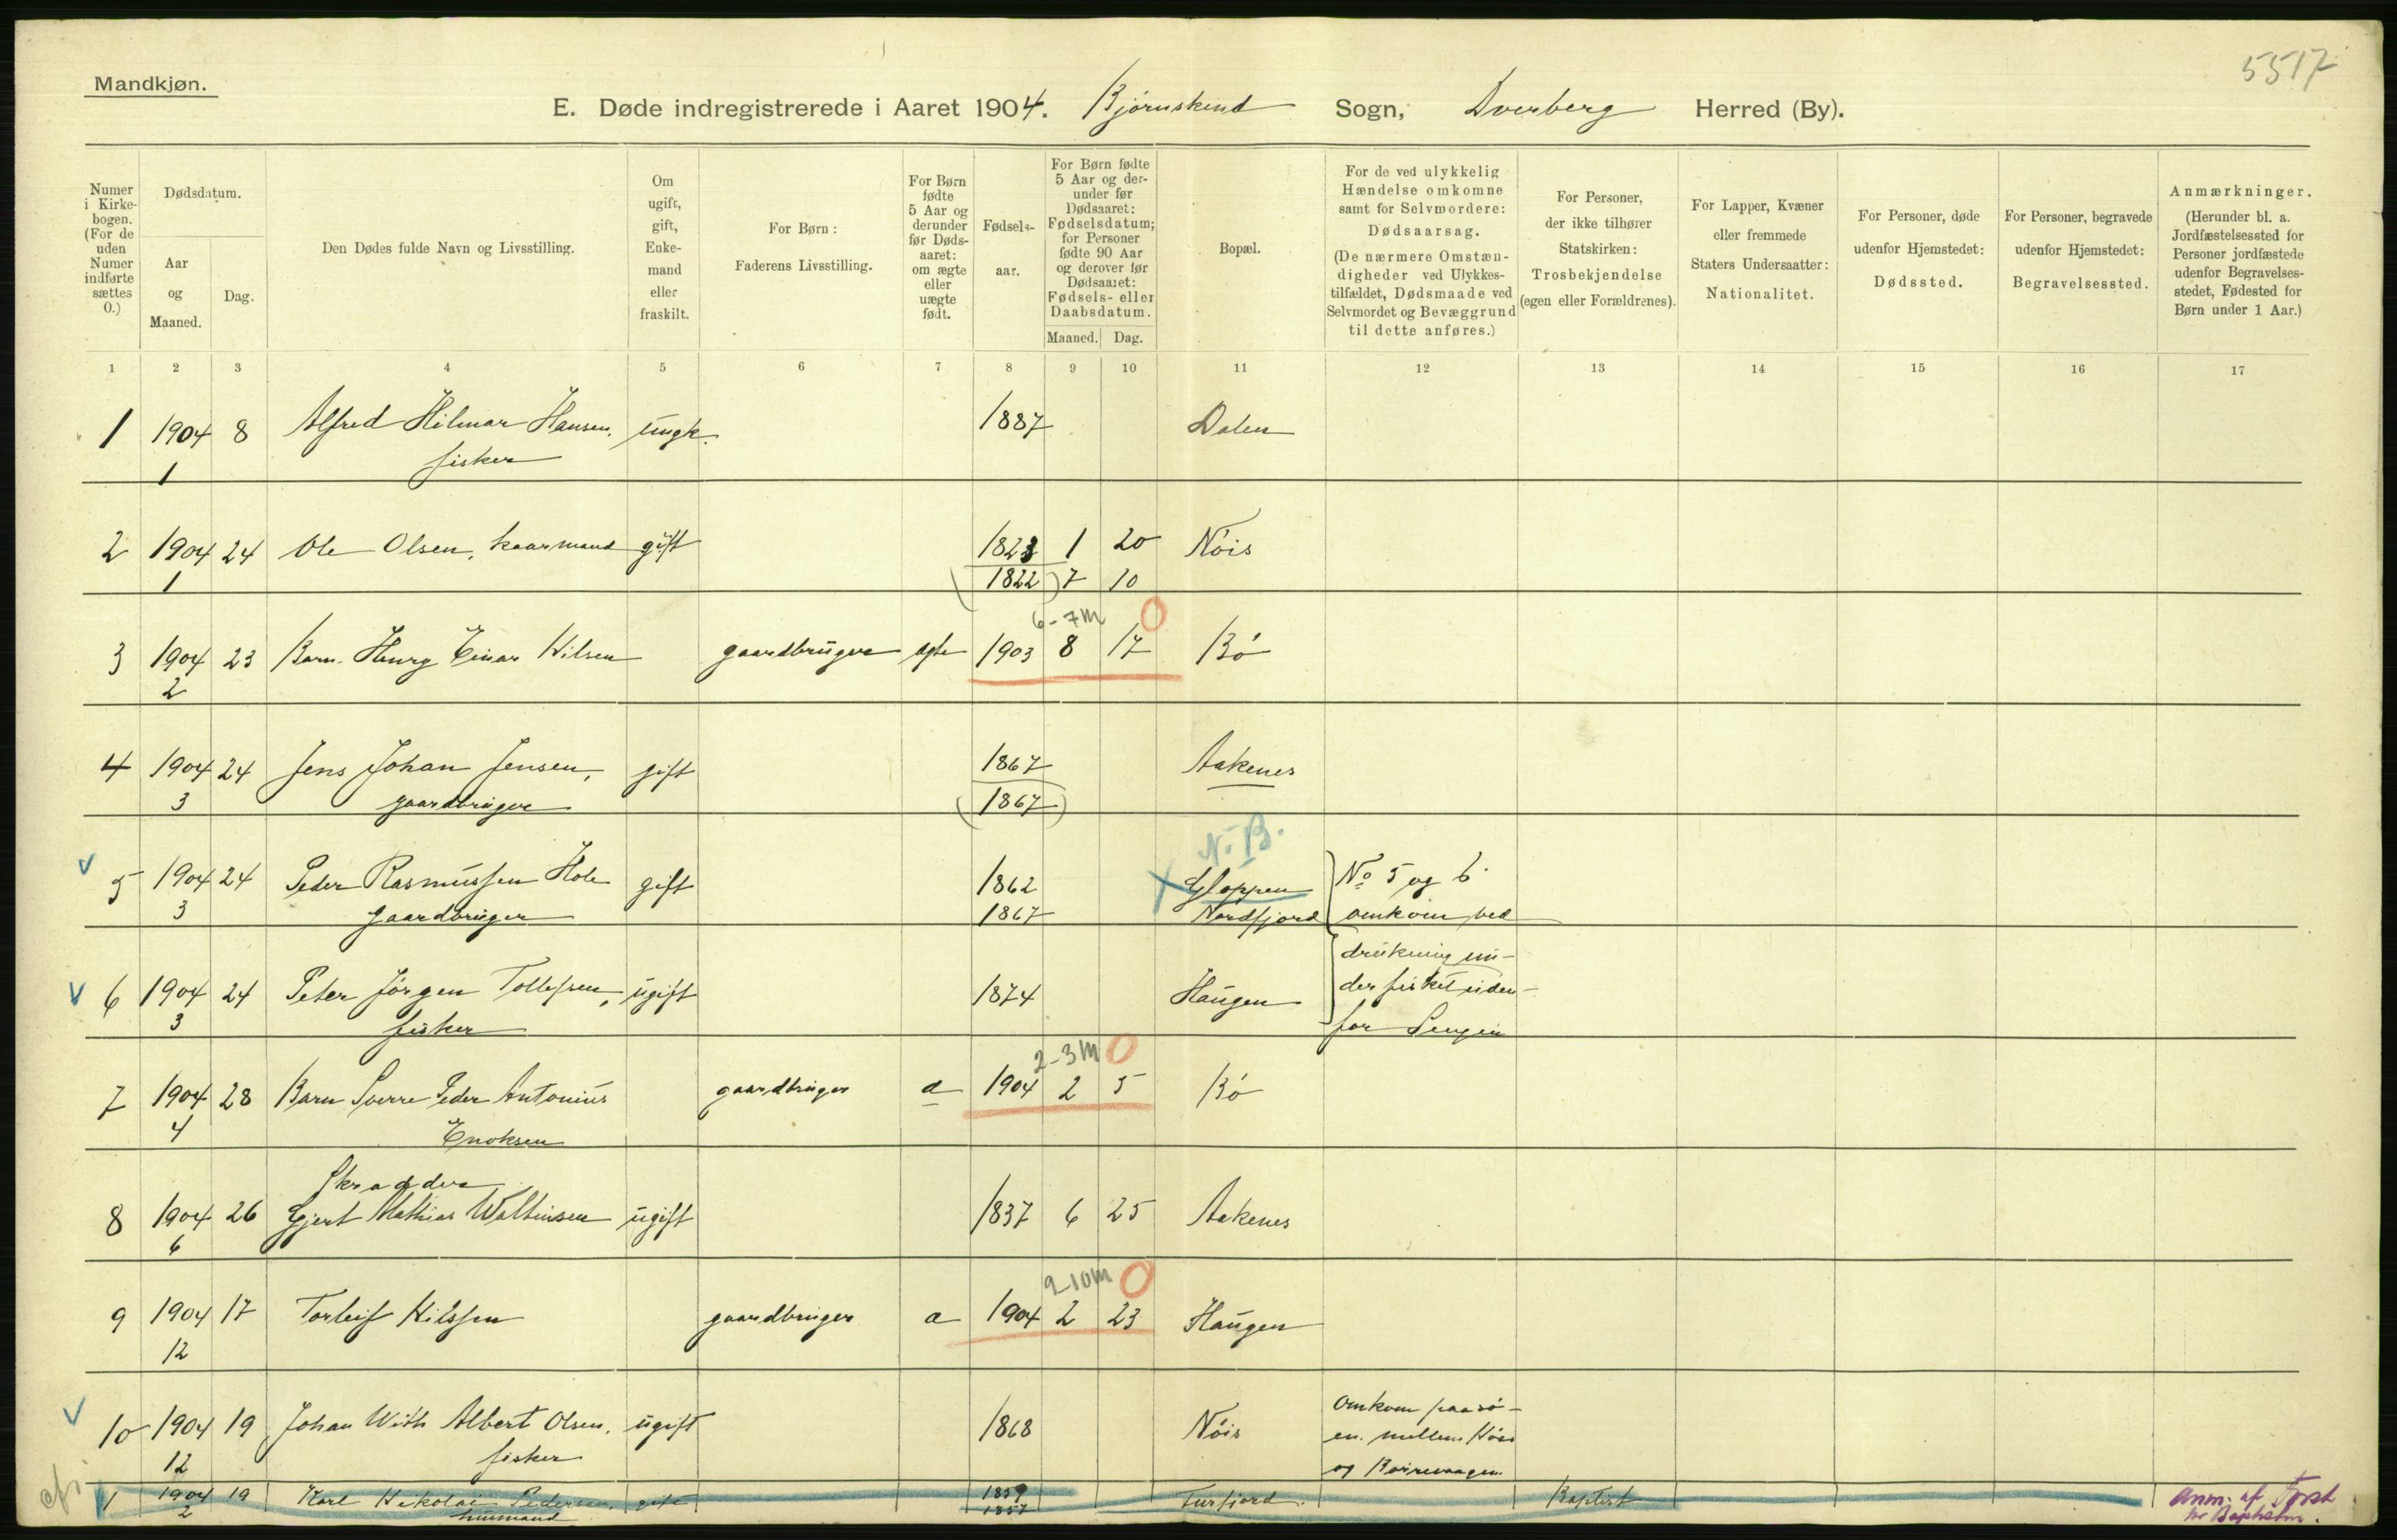 5517
Mandkjøn.
E. Døde indregistrerede i Aaret 1904. Bjørnskind Sogn, Dverberg Herred (By).
Numer i Kirke-bogen. (For de uden Numer indførte sættes 0.)
Dødsdatum.
Aar og Maaned.
Dag.
Den Dødes fulde Navn og Livsstilling.
Om ugift, gift, Enke-mand eller fraskilt.
For Børn: Faderens Livsstilling.
For Børn fødte 5 Aar og derunder før Døds-aaret: om ægte eller uægte født.
Fødsels-aar.
For Børn fødte 5 Aar og der-under før Dødsaaret: Fødselsdatum; for Personer fødte 90 Aar og derover før Dødsaaret: Fødsels- eller Daabsdatum.
Maaned. Dag.
Bopæl.
For de ved ulykkelig Hændelse omkomne samt for Selvmordere: Dødsaarsag. (De nærmere Omstæn-digheder ved Ulykkes-tilfældet, Dødsmaade ved Selvmordet og Bevæggrund til dette anføres.)
For Personer, der ikke tilhører Statskirken: Trosbekjendelse (egen eller Forældrenes).
For Lapper, Kvæner eller fremmede Staters Undersaatter: Nationalitet.
For Personer, døde udenfor Hjemstedet: Dødssted.
For Personer, begravede udenfor Hjemstedet: Begravelsessted.
Anmærkninger. (Herunder bl. a. Jordfæstelsessted for Personer jordfæstede udenfor Begravelses-stedet, Fødested for Børn under 1 Aar.)
1 2 3 4 5 6 7 8 9 10 11 12 13 14 15 16 17
1 1904 8 Alfred Hilmar Hansen, ungk. 1887 Dalen
1 fisker
2 1904 24 Ole Olsen, kaarmand gift 1823 1 20 Nöis
1 (1822) 7 10
6-7 m 0
3 1904 23 Barn Henry Einar Nilsen gaardbruger ægte 1903 8 17 Bö
2
4 1904 24 Jens Johan Jensen, gift 1867 Aakenes
3 gaardbruger (1867)
N.B.
5 1904 24 Peder Rasmussen Hole gift 1862 Gloppen No 5 og 6
3 gaardbruger 1867 Nordfjord omkom ved
drukning un-
6 1904 24 Peter Jörgen Tollefsen, ugift 1874 Haugen der fisket uden-
3 fisker for Sengen
2-3 m 0
7 1904 28 Barn Sverre Peder Antonius gaardbruger a 1904 2 5 Bö
4 Enoksen
Skrædder
8 1904 26 Gjert Mathias Waltinsen ugift 1837 6 25 Aakenes
6
9-10 m 0
9 1904 17 Torleif Nilssen gaardbruger a 1904 2 23 Haugen
12
Omkom paa sö-
10 1904 19 Johan With Albert Olsen, ugift 1868 Nöis en mellem Nöis
12 fisker og
1 1904 19 Karl Nikolai Pedersen, gift 1859 Furfjord. Baptist Anm. af Forst.
2 husmand 1857 for Baptistm.